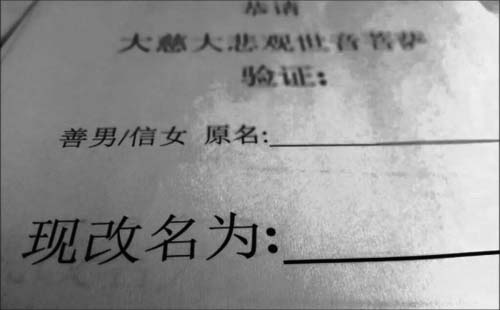 恭请
大慈大悲观世音菩萨
验证:
善男/信女 原名:
现改名为: